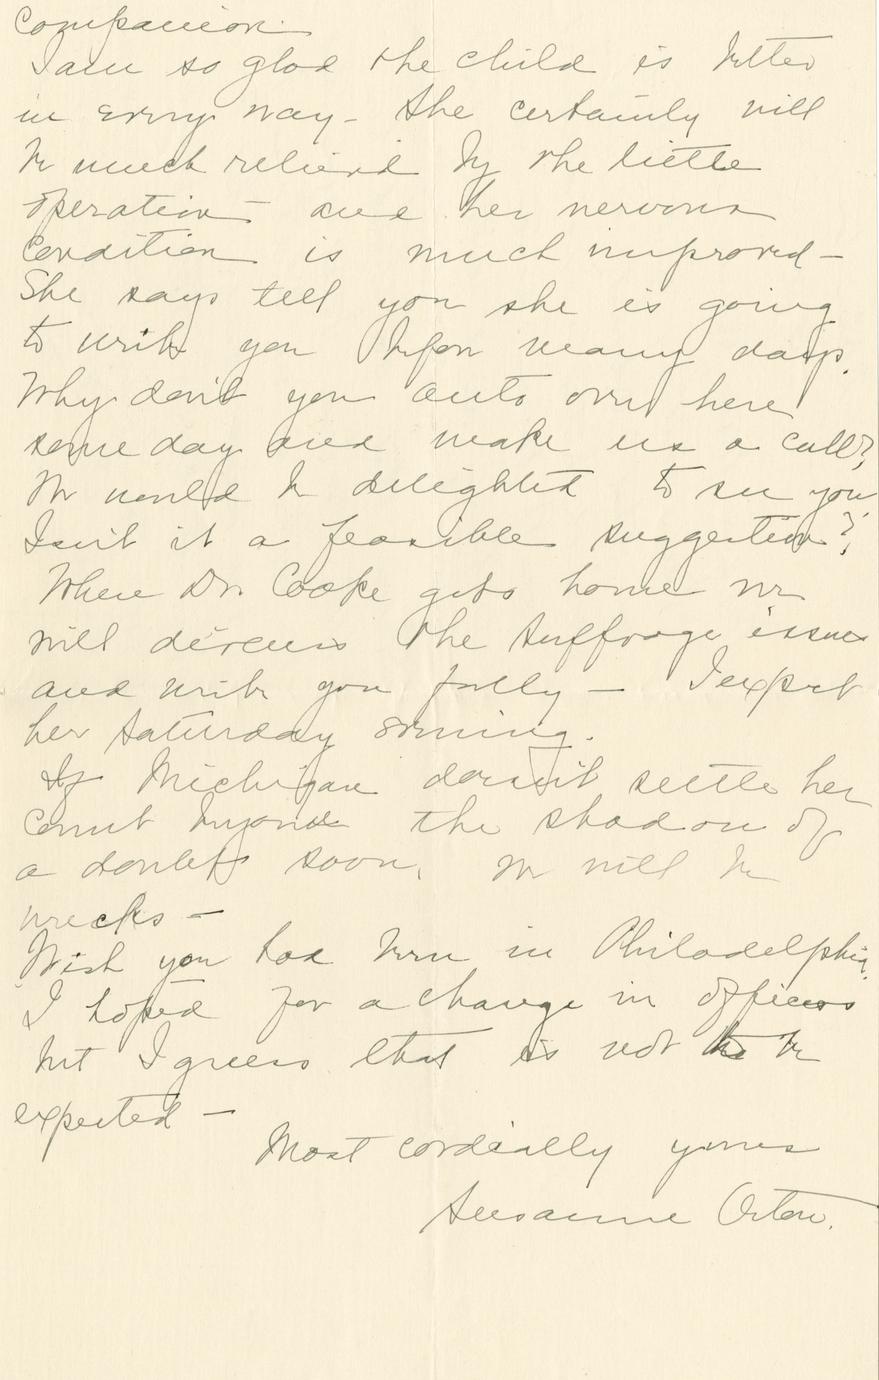 companion.
I am so glad the child is better
in every way - She certainly will
be much relieved by the little
operation - and her nervous
condition is much improved -
She says tell you she is going
to write you before many days.
Why don't you auto over here
some day and make us a call?
We would be delighted to see you
Isn't it a feasible suggestion?
When Dr. Cooke gets home we
will discuss the suffrage issues
and write you fully - I expect
her Saturday evening.
If Michigan doesn't settle her
count beyond the shadow of
a doubt soon, we will be
wrecks -
Wish you had been in Philadelphia.
I hoped for a change in officers
but I guess that is not to be
expected -
Most cordially yours
Susanne Orton.